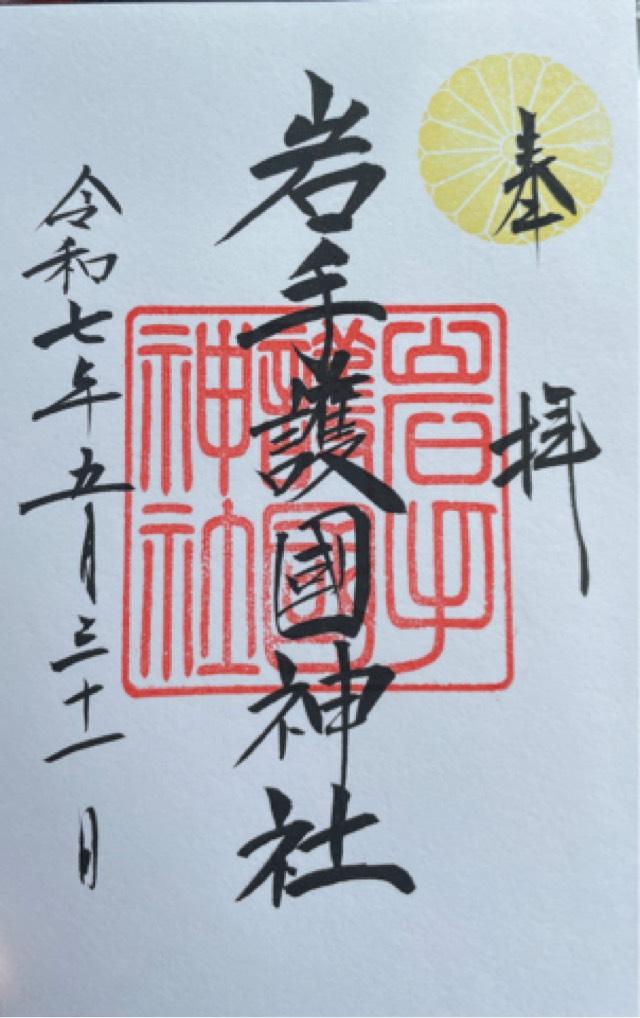 奉拝
岩手護國神社
岩手
護國
神社
令和七年五月三十一日